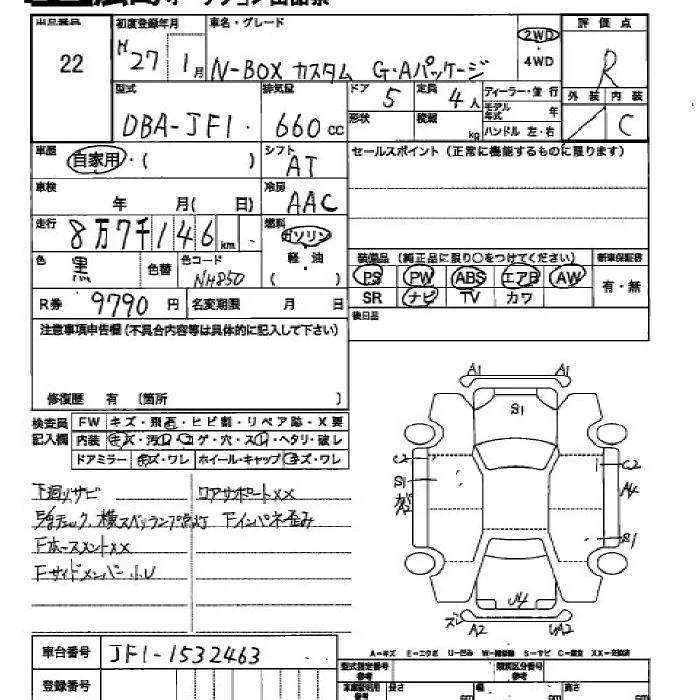 出品番号 初度登録年月 車名・グレード 2WD 評価点
22 H27 1月 N-BOX カスタム G・Aパッケージ ・ 4WD R
型式 排気量 ドア 5 定員 4人 ディーラー・並行 外装 内装
DBA-JF1. 660cc 形状 積載 kg モデル年式 年 ハンドル 左・右 C
車歴 自家用・( ) シフト AT セールスポイント(正常に機能するものに限ります)
車検 年 月( 日) 冷房 AAC
走行 8万7千146km 燃料 ガソリン
軽・油
( )
色 黒 色替 色コード NH850 装備品(純正品に限り○をつけてください) 新車保証書
PS PW ABS エアB AW 有・無
R券 9790円 名変期限 月 日 SR ナビ TV カワ
注意事項申告欄(不具合内容等は具体的に記入して下さい) 後日品
修復歴 有 〔箇所 〕
検査員 FW キズ・飛石・ヒビ割・リペア跡・X要
記入欄 内装 キズ・汚レ・コゲ・穴・スレ・ヘタリ・破レ
ドアミラー キズ・ワレ ホイール・キャップ キズ・ワレ
下廻りサビ コアサポートXX
横スベリランプ点灯 Fインパネ歪み
FホースメントXX
Fサイドメンバー小U
A1 A1
S1
C2 C2
S1 A4
A2
S1
U4
ズレ A2 UA2
A-キズ E-エクボ U-凹み W-補修跡 S-サビ C-腐食 XX-交換済
車台番号 JF1-1532463 型式指定番号 参考 類別区分番号 参考
登録番号 車庫証明用 参考 長さ cm 幅 cm 高さ cm